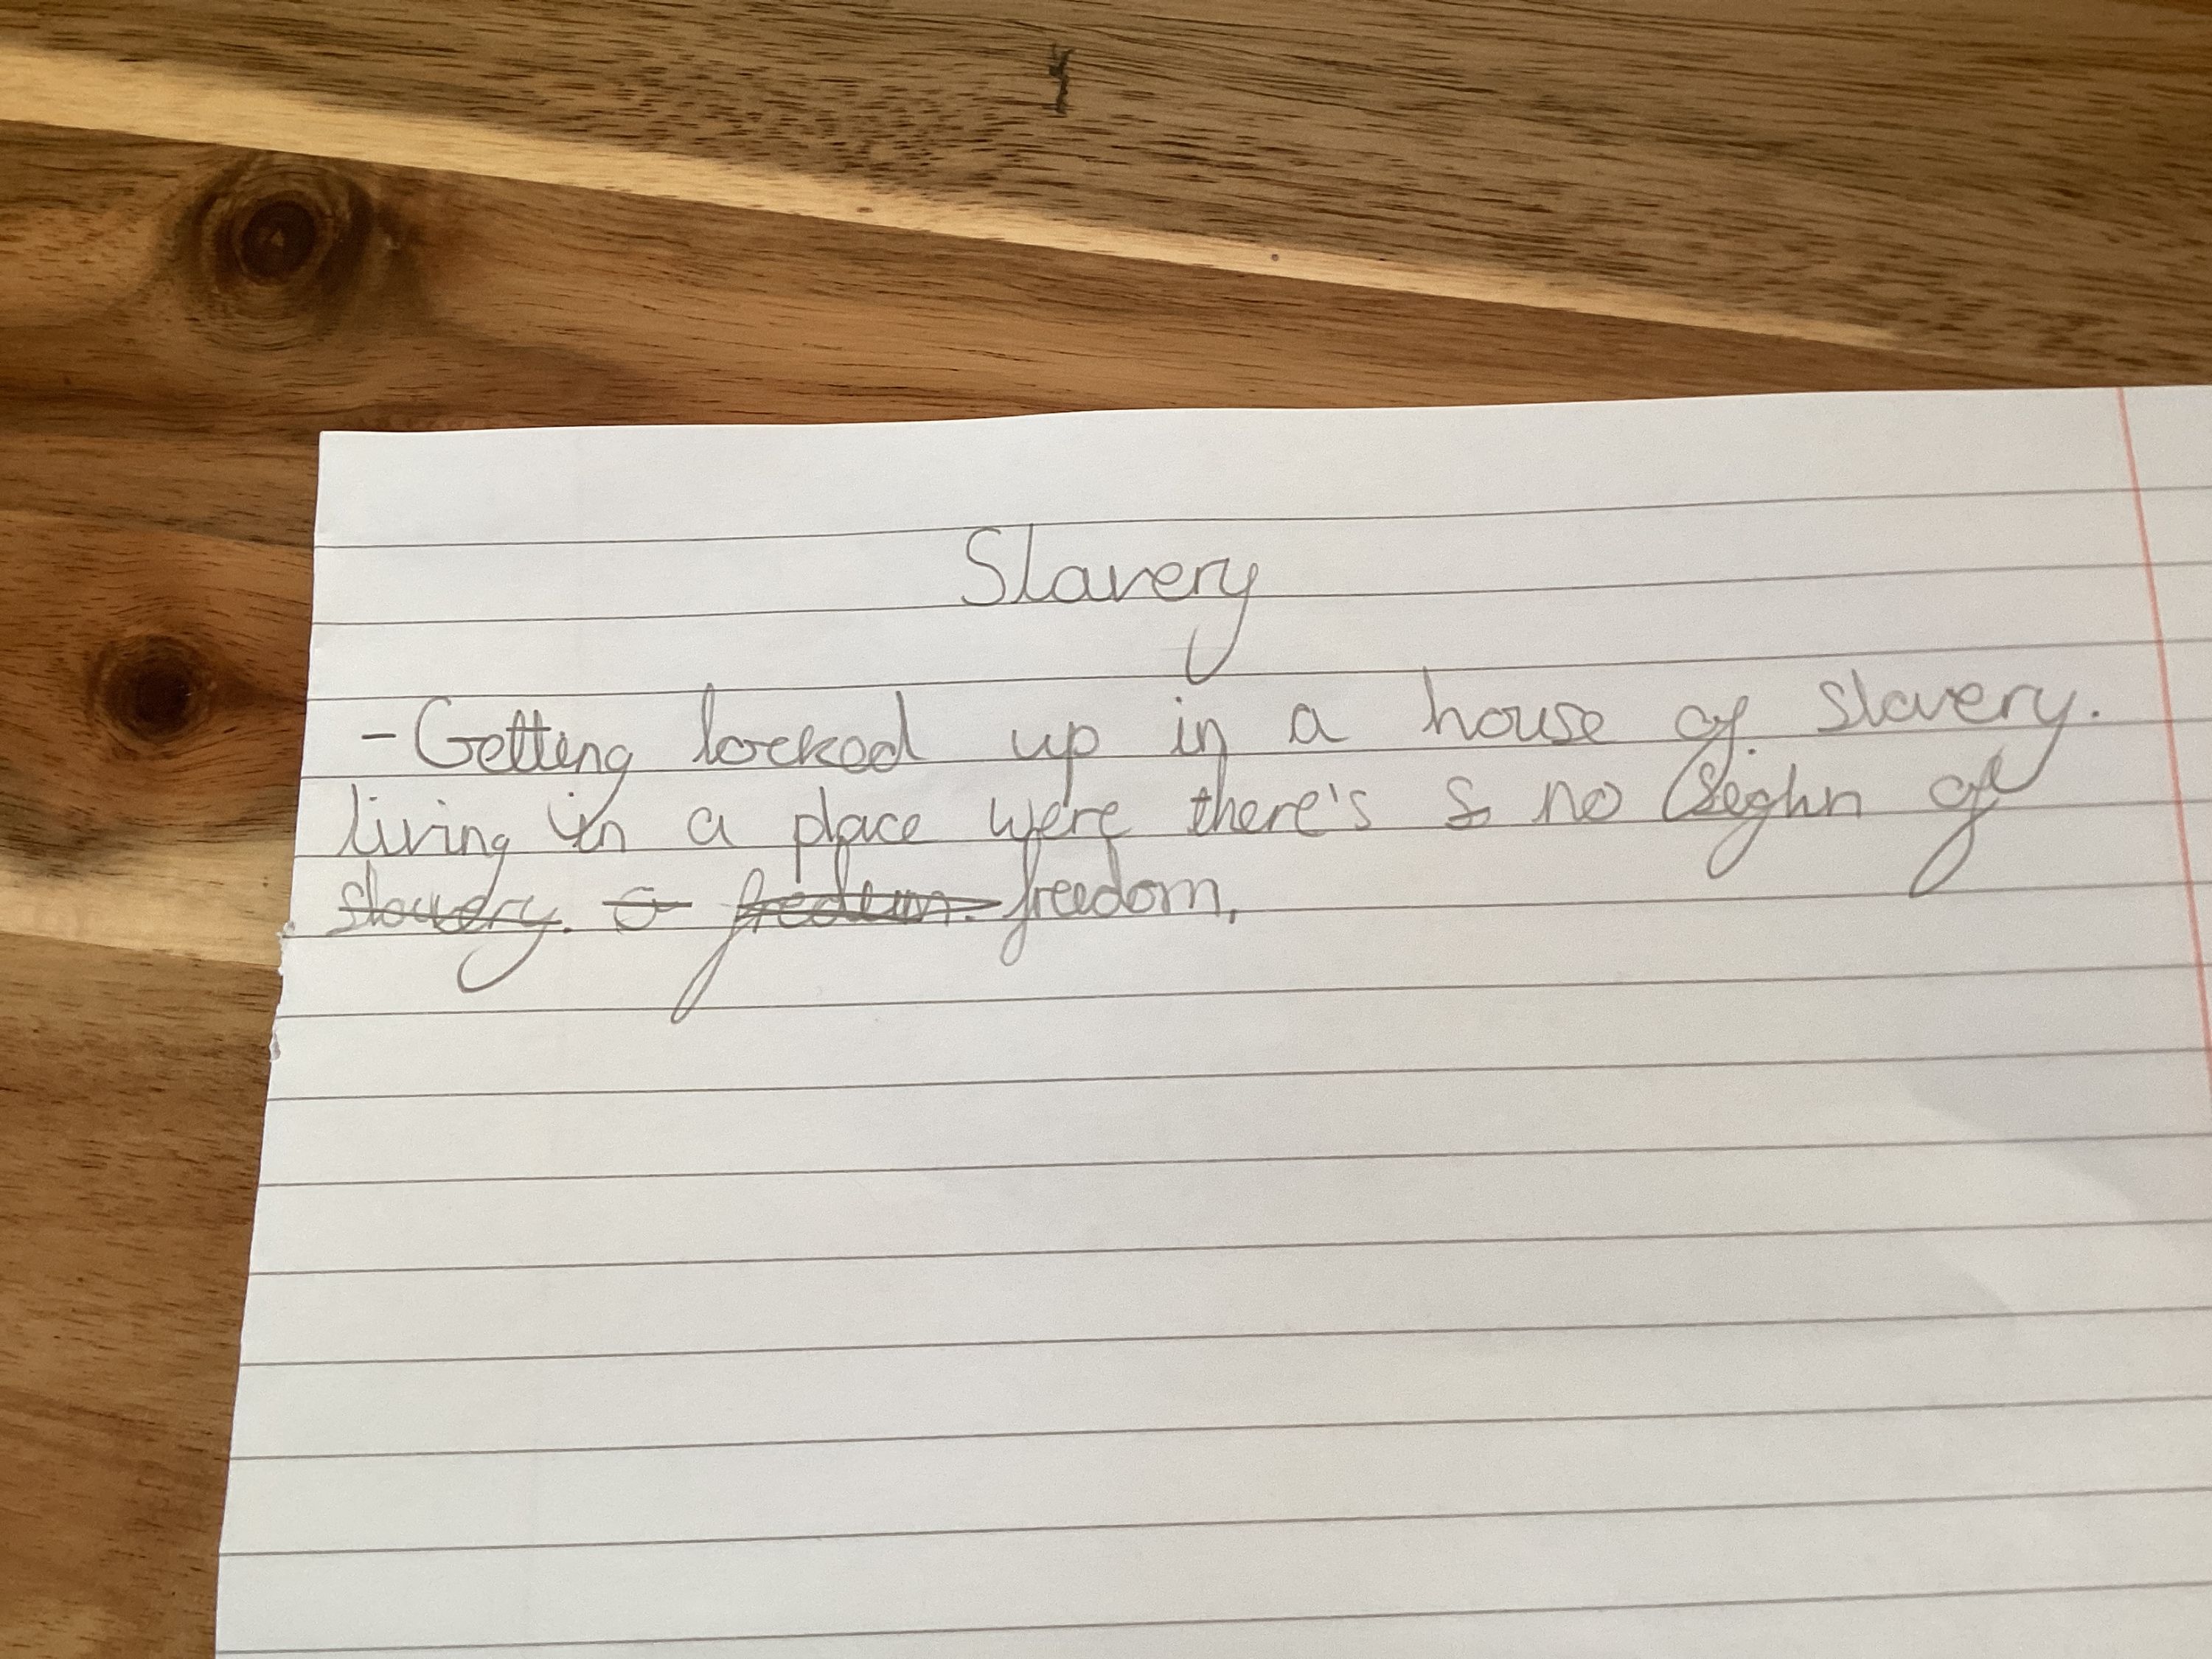 Slavery
- Getting locked up in a house of slavery.
living in a place were there's no seighn of
slavery. fredum. freedom.